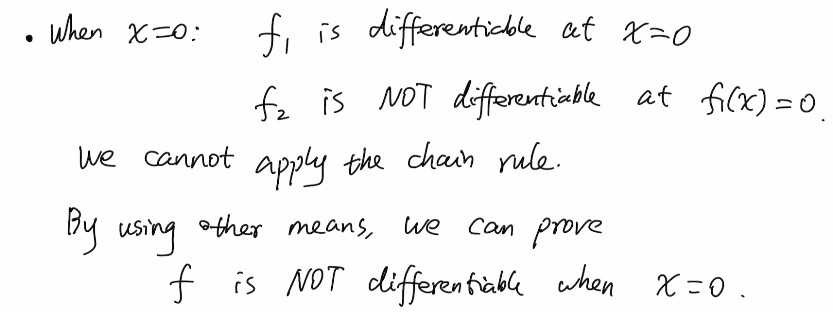 • When x=0: f₁ is differentiable at x=0
f₂ is NOT differentiable at f₁(x)=0.
We cannot apply the chain rule.
By using other means, we can prove
f is NOT differentiable when x=0.